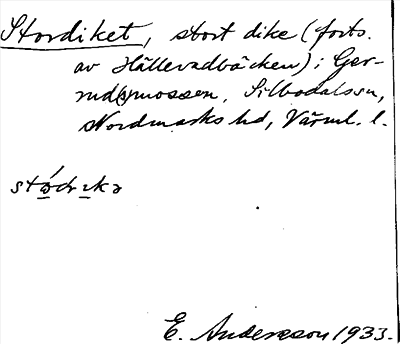 Stordiket, stort dike (forts.
av Hällevadbäcken) i Ger-
rud(s)mossen, Silbodalssn,
Nordmarks hd, Värml. l.
E. Andersson 1933.